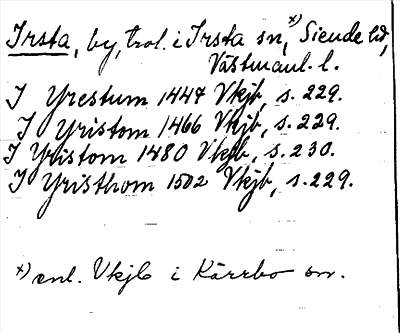 Irsta, by, trol. i Irsta sn,*) Siende hd,
Västmanl. l.
I Yrestum 1447 Vkjb, s. 229.
I Yristom 1466 Vkjb, s. 229.
I Yristom 1480 Vkjb, s. 230.
I Yristhom 1502 Vkjb, s. 229.
*) enl. Vkjb i Kärrbo sn.